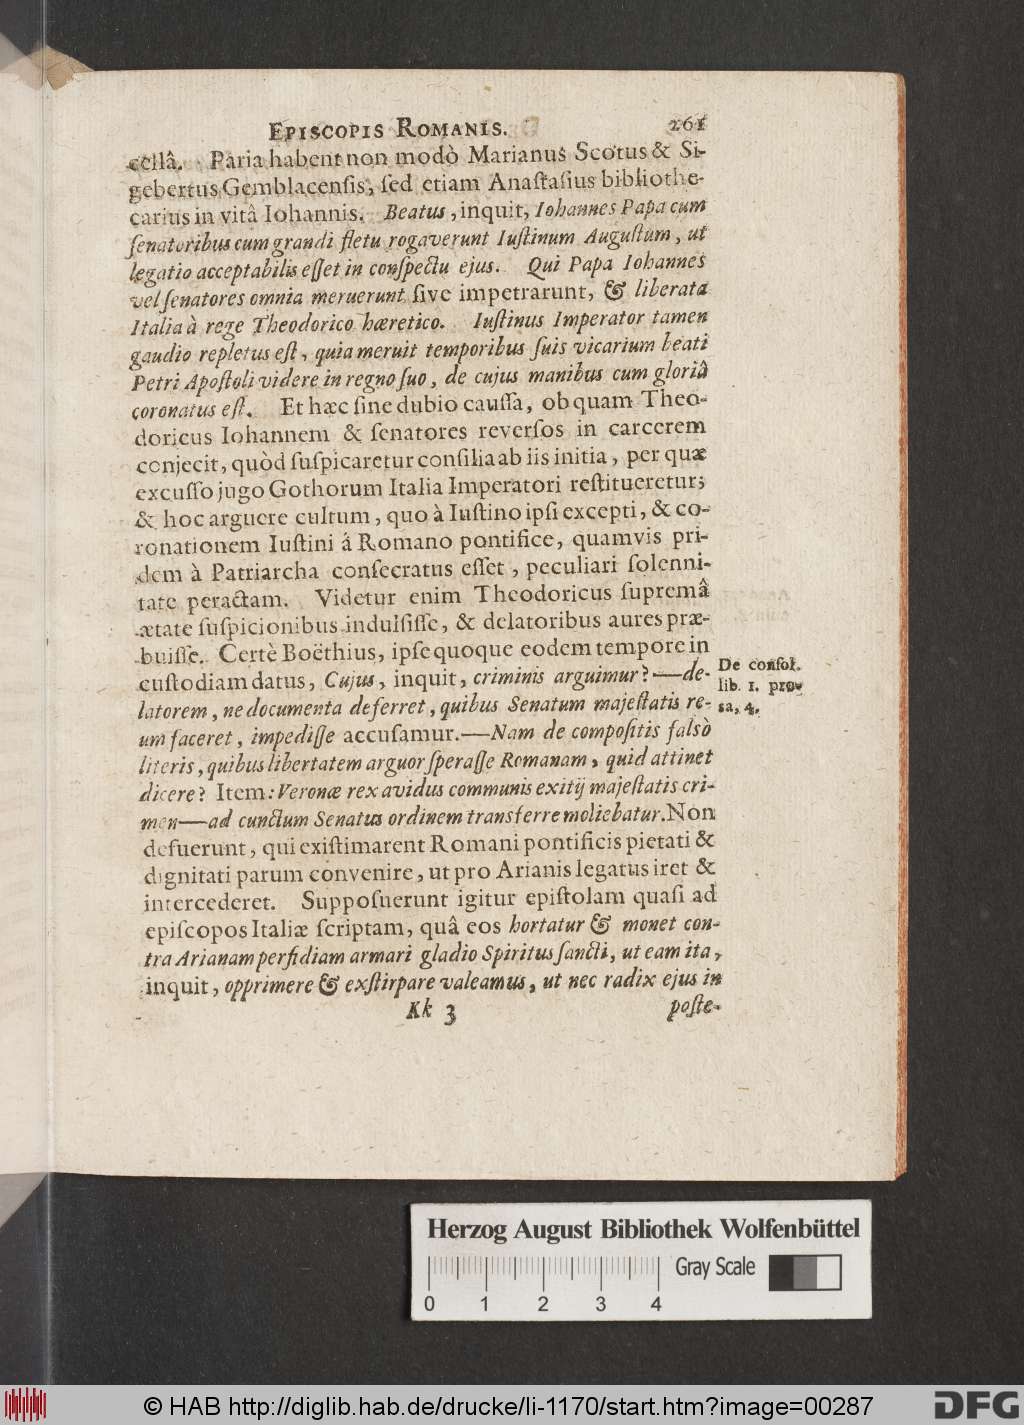 EPISCOPIS ROMANIS. 261
cellâ. Paria habent non modò Marianus Scotus & Si-
gebertus Gemblacensis, sed etiam Anastasius bibliothe-
carius in vitâ Iohannis. Beatus, inquit, Iohannes Papa cum
senatoribus cum grandi fletu rogaverunt Iustinum Augustum, ut
legatio acceptabilis esset in conspectu ejus. Qui Papa Iohannes
vel senatores omnia meruerunt sive impetrarunt, & liberata
Italia à rege Theodorico hæretico. Iustinus Imperator tamen
gaudio repletus est, quia meruit temporibus suis vicarium beati
Petri Apostoli videre in regno suo, de cujus manibus cum gloriâ
coronatus est. Et hæc sine dubio caussa, ob quam Theo-
doricus Iohannem & senatores reversos in carcerem
conjecit, quòd suspicaretur consilia ab iis initia, per quæ
excusso jugo Gothorum Italia Imperatori restitueretur;
& hoc arguere cultum, quo à Iustino ipsi excepti, & co-
ronationem Iustini á Romano pontifice, quamvis pri-
dem à Patriarcha consecratus esset, peculiari solenni-
tate peractam. Videtur enim Theodoricus supremâ
ætate suspicionibus indulsisse, & delatoribus aures præ-
buisse. Certè Boëthius, ipse quoque eodem tempore in
custodiam datus, Cujus, inquit, criminis arguimur?—de-
latorem, ne documenta deferret, quibus Senatum majestatis re-
um faceret, impedisse accusamur.—Nam de compositis falsò
literis, quibus libertatem arguor sperasse Romanam, quid attinet
dicere? Item: Veronæ rex avidus communis exitij majestatis cri-
men—ad cunctum Senatus ordinem transferre moliebatur. Non
defuerunt, qui existimarent Romani pontificis pietati &
dignitati parum convenire, ut pro Arianis legatus iret &
intercederet. Supposuerunt igitur epistolam quasi ad
episcopos Italiæ scriptam, quâ eos hortatur & monet con-
tra Arianam perfidiam armari gladio Spiritus sancti, ut eam ita,
inquit, opprimere & exstirpare valeamus, ut nec radix ejus in
Kk 3 poste-
De consol.
lib. 1. pro-
sa, 4.
Herzog August Bibliothek Wolfenbüttel
Gray Scale
0 1 2 3 4
© HAB http://diglib.hab.de/drucke/li-1170/start.htm?image=00287
DFG